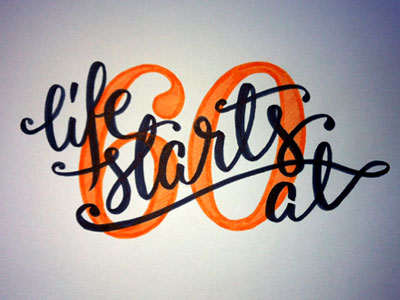 life
starts
at
60